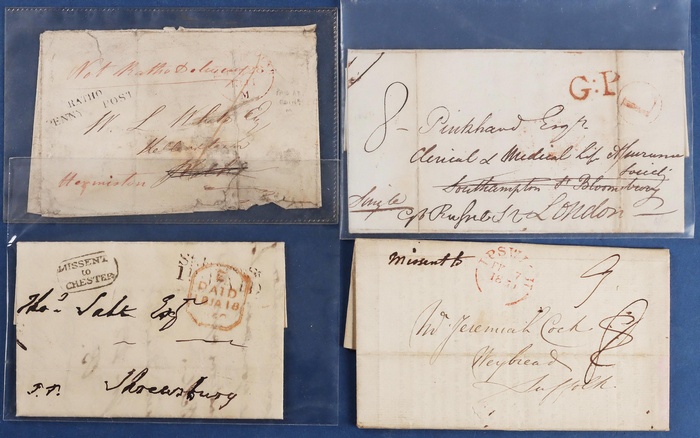 Not Ratho Delivery
RATHO
PENNY POST
M
W. L. White Esq
Hermiston
G:P
8
Pinkhard Esqr
Clerical & Medical Life Assurance
Society
Southampton St Bloomsbury
Single
Russel St London
MISSENT
to
CHESTER
PAID
Thos. Salt Esqr
Shrewsbury
Missent to
IPSWICH
9
Mr Jeremiah Cock
8
Weybread
Suffolk